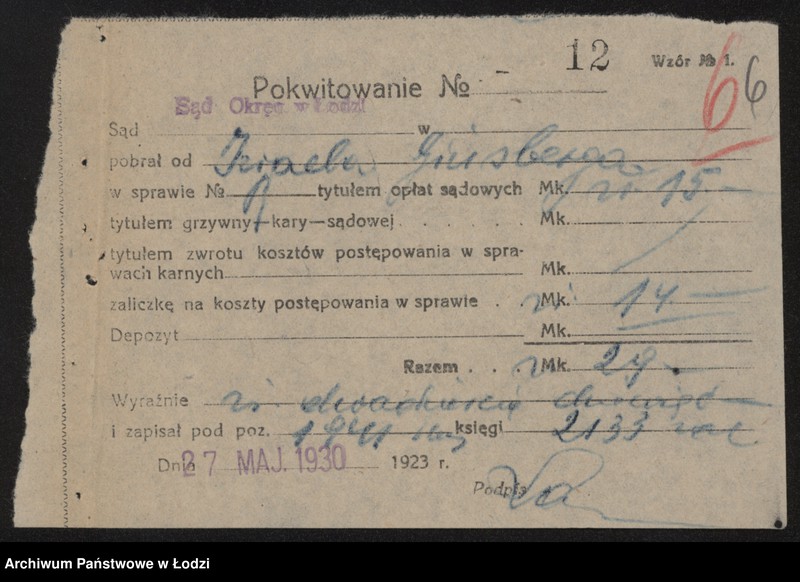 12
Wzór № 1.
Pokwitowanie №
6 6
Sąd Okręg. w Łodzi
Sąd w
pobrał od Izraela Ginsberga
w sprawie № tytułem opłat sądowych Mk. zł 15 -
tytułem grzywny - kary - sądowej . . . . . . Mk.
tytułem zwrotu kosztów postępowania w spra-
wach karnych Mk.
zaliczkę na koszty postępowania w sprawie . . zł Mk. 14 -
Depozyt Mk.
Razem . . zł Mk. 29 -
Wyraźnie zł. dwadzieścia dziewięć
i zapisał pod poz. księgi 2133
Dnia 27 MAJ. 1930 1923 r.
Podpis
Archiwum Państwowe w Łodzi